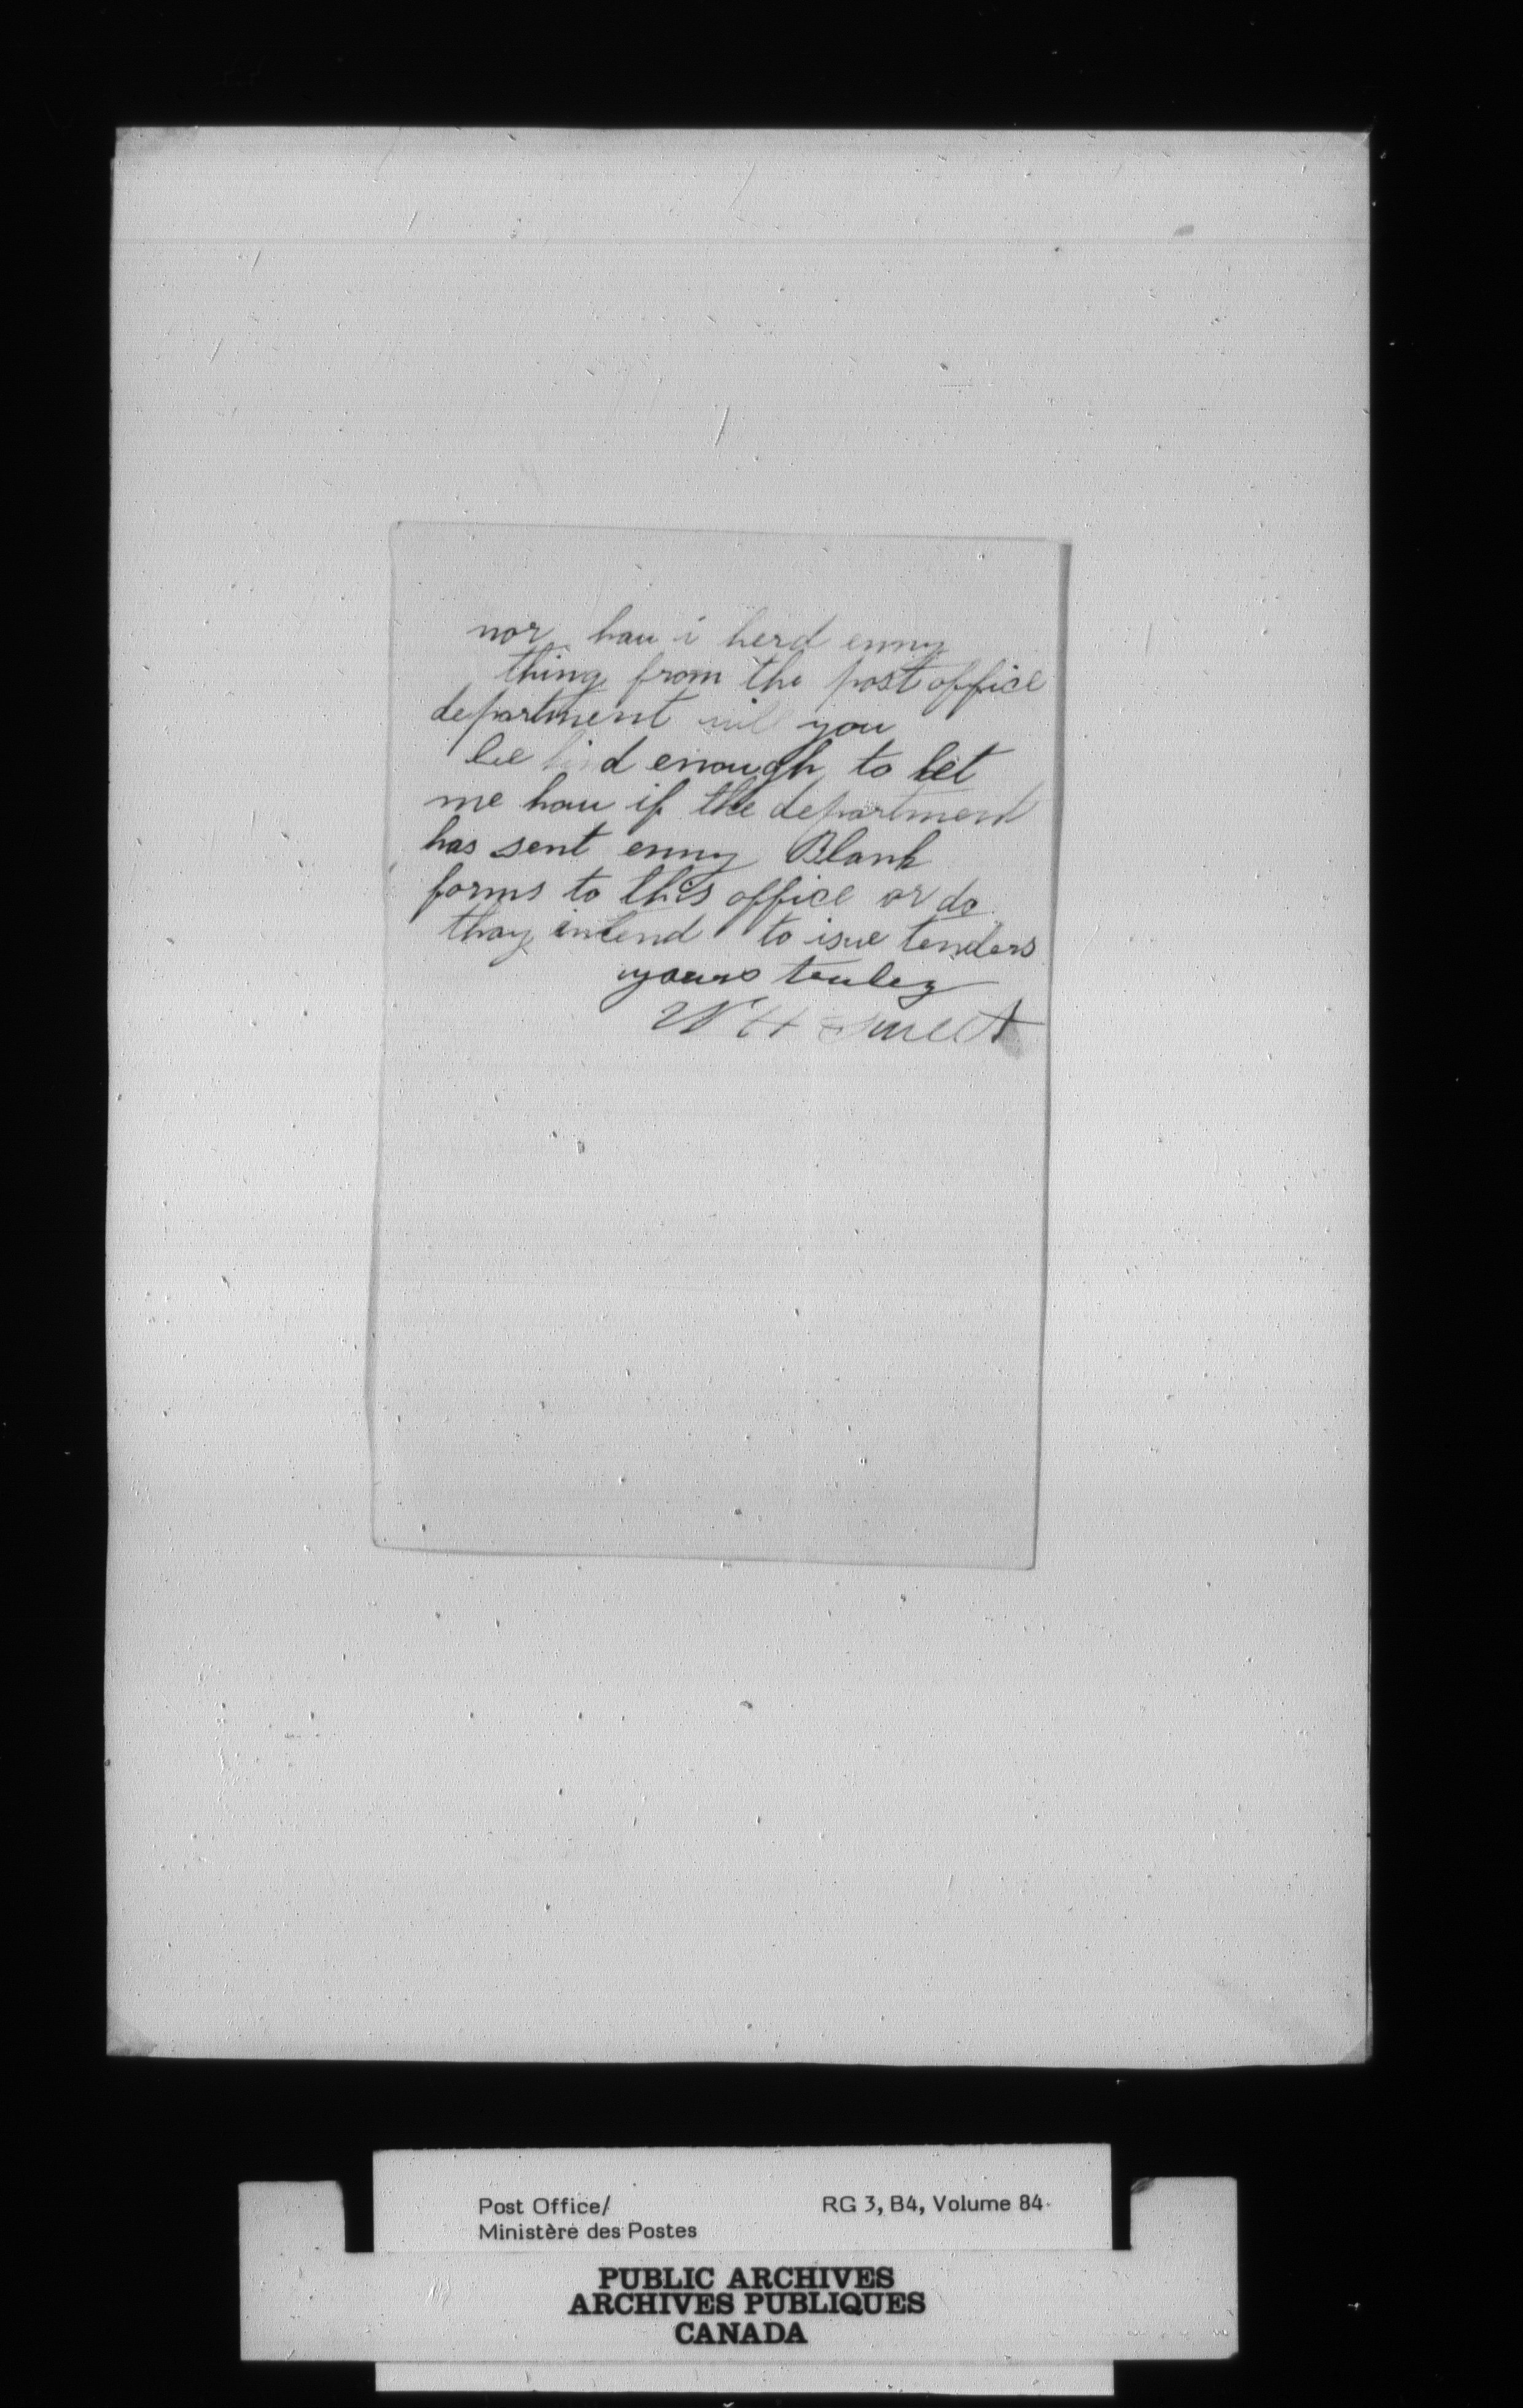 nor hav i herd enny
thing from the post office
department will you
be kind enough to let
me hau if the department
has sent enny Blank
forms to this office or do
thay intend to isue tenders
yours truley
W H Sweet
Post Office/
Ministère des Postes
RG 3, B4, Volume 84
PUBLIC ARCHIVES
ARCHIVES PUBLIQUES
CANADA